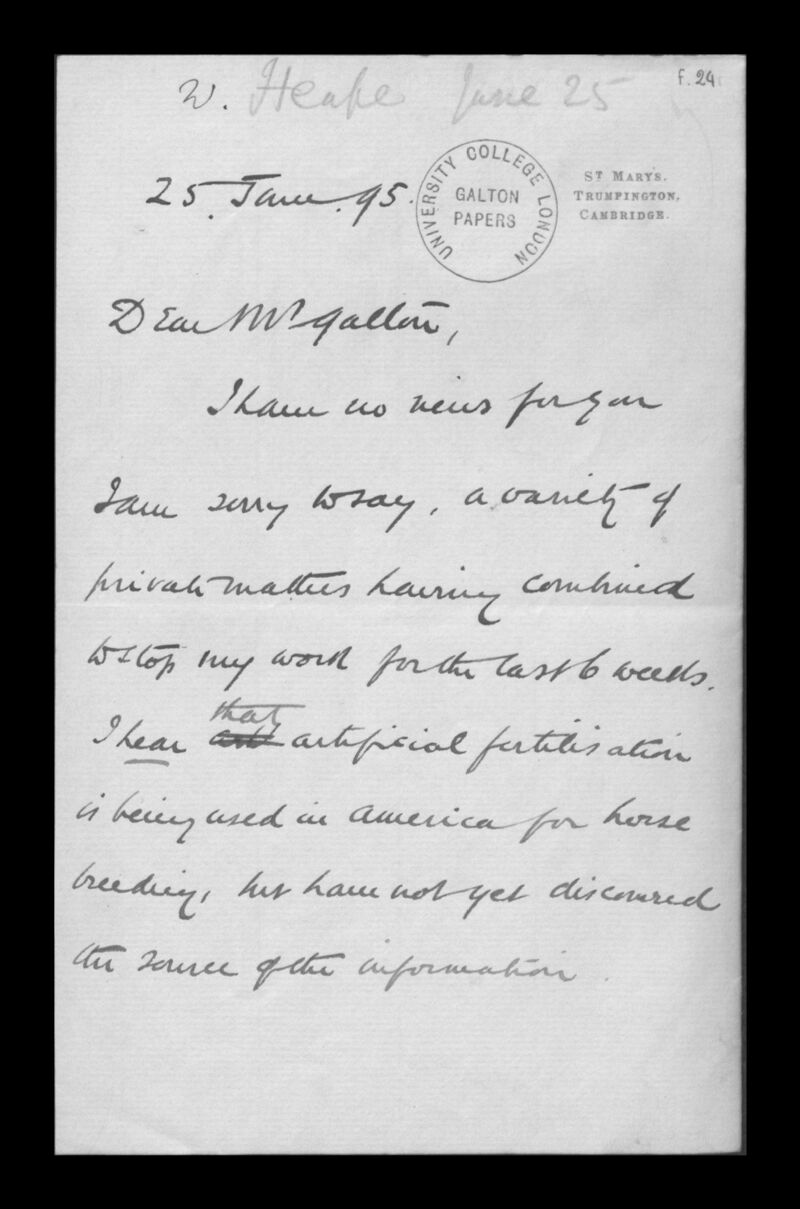 W. Heape June 25
f. 29
25. June. 95.
UNIVERSITY COLLEGE LONDON
GALTON
PAPERS
ST MARY'S.
TRUMPINGTON,
CAMBRIDGE.
Dear Mr Galton,
I have no news for you
I am sorry to say, a variety of
private matters having combined
to stop my work for the last 6 weeks.
that
I hear artificial fertilisation
is being used in America for horse
breeding, but have not yet discovered
the source of the information.